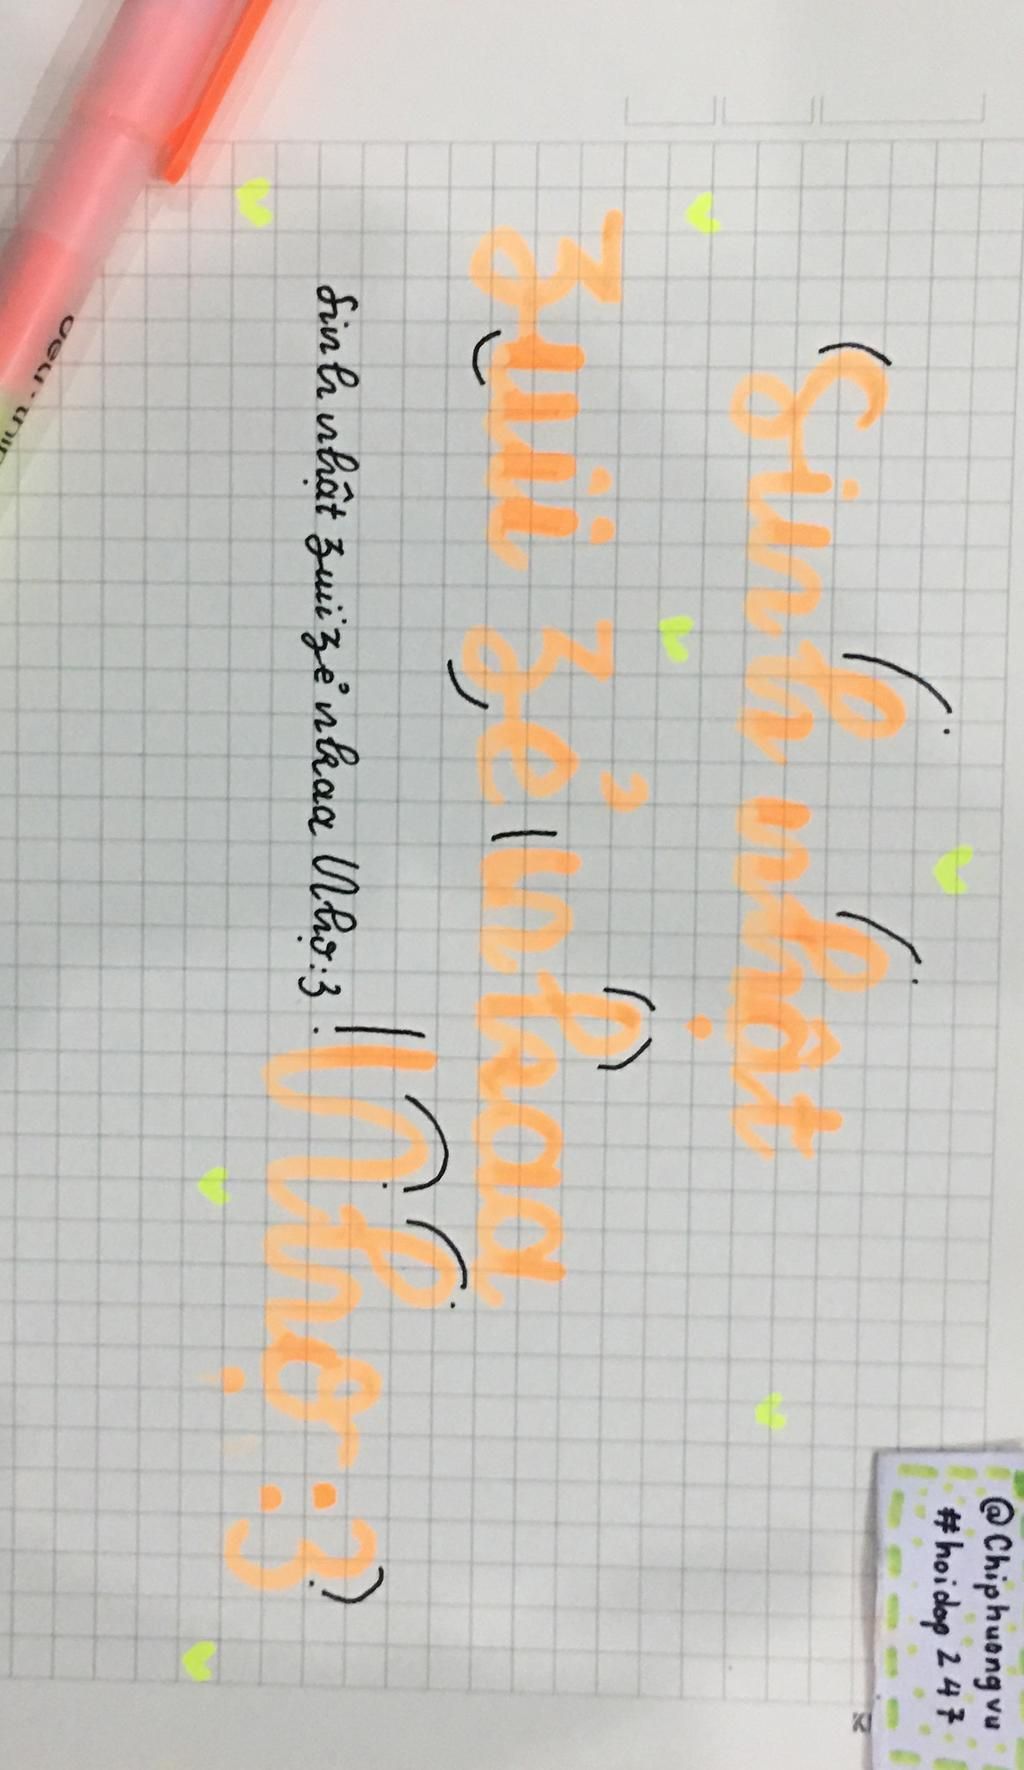 Sinh nhật
zuii zẻ nhaa
Nhợ :3
Sinh nhật zuii zẻ nhaa Nhợ :3
@Chiphuongvu
#hoidap247